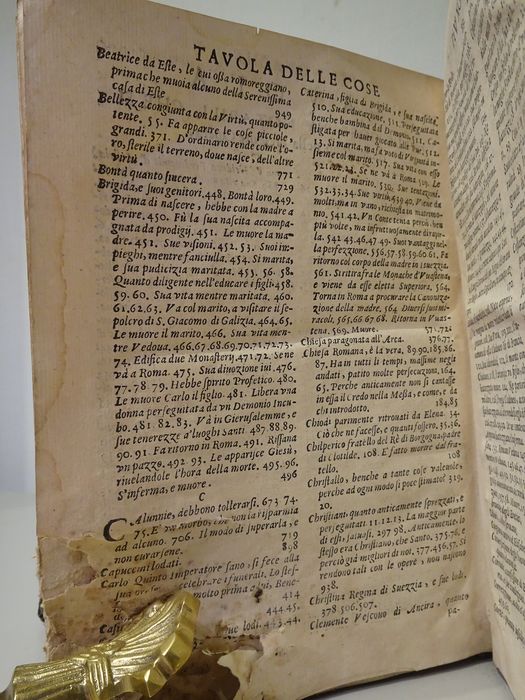 TAVOLA DELLE COSE
Beatrice da Este, le cui ossa romoreggiano,
prima che muoia alcuno della Serenissima
casa di Este. 949
Bellezza congiunta con la Virtù, quanto po-
tente. 55. Fa apparire le cose picciole,
grandi. 371. D'ordinario rende come l'o-
ro, sterile il terreno, dove nasce, dell'altre
virtù. 771
Bontà quanto sincera. 729
Brigida, e suoi genitori. 448. Bontà loro. 449.
Prima di nascere, hebbe con la madre a
perire. 450. Fù la sua nascita accompa-
gnata da prodigij. 451. Le muore la ma-
dre. 451. Sue visioni. 452. 53. Suoi im-
pieghi, mentre fanciulla. 454. Si marita,
e sua pudicizia maritata. 453. 56. 58.
Quanto diligente nell'educare i figli. 458.
59. 60. Sua vita mentre maritata. 460.
61. 62. 63. Và col marito, a visitare il se-
polcro di S. Giacomo di Galizia. 464. 65.
Le muore il marito. 466. Sua vita men-
tre Vedova. 466. 67. 68. 69. 70. 71. 72. 73.
74. Edifica due Monasterj. 471. 72. Se ne
và a Roma. 475. Sua divozione ivi. 476.
77. 78. 79. Hebbe spirito Profetico. 480.
Le muore Carlo il figlio. 481. Libera una
donna perseguitata da un Demonio Incu-
bo. 481. 82. 83. Và in Gierusalemme, e
sue tenerezze a' luoghi Santi. 487. 88. 89.
90. 91. Fà ritorno in Roma. 491. Risana
un pazzo. 492. 93. Le apparisce Giesù,
rivelandole l'hora della morte. 495. 96.
S'inferma, e muore. 496
C
CAlunnie, debbono tollerarsi. 673 74.
75. E' un morbo, che non la risparmia
ad alcuno. 706. Il modo di superarla, e
non curarsene. 719
Capuccini lodati. 898
Carlo Quinto Imperatore sano, si fece alla
sua celebrare i funerali. Lo stes-
molto prima di lui, Bene-
414
444. 45.
lodi. 443. 44.
Caterina, figlia di Brigida, e sua nascita.
510. Sua educazione. 511. Perseguitata
benche bambina dal Demonio. 511. Ca-
stigata per haver giocato alle 512.
13. Si marita, mà fà voto di Virginità in-
sieme col marito. 517. Sua vita con esso
Se ne và à Roma. 529. Le
muore il marito. 530. Sue tentazioni.
532. 33. 34. Sue virtù. 539 40. Viene da
molti, ma in vano, richiesta in matrimo-
nio. 541. 42. Vn Conte tenta perciò, ben
più volte, ma infruttuosamente di rapir-
la. 542 43. 46. 47 49. Suoi vantaggi nel-
la perfezzione. 556. 57. 58. 59. 60. 61. Fa
ritorno col corpo della madre in Suezzia.
561. Si ritira frà le Monache d'Vuastena,
e viene da esse eletta Superiora. 564.
Torna in Roma a procurare la Canoniz-
zazione della madre. 564. Diversi suoi mi-
racoli. 565. 66. 67. 68. Ritorna in Vuas-
tena. 569. Muore. 571. 72.
Chiesa paragonata all'Arca. 376. 77.
Chiesa Romana, è la vera. 89. 90. 185. 86.
87. Ha in tutti i tempi, massime negli
andati, patito molte persecuzioni. 164.
65. Perche anticamente non si cantasse
in essa il Credo nella Messa, e conte, e da
chi introdotto. 184. 85
Chiodi parimente ritrovati da Elena. 34.
Ciò che ne facesse, e quanti fossero. 35. 36.
Chilperico fratello del Rè di Borgogna, padre
di Clotilde. 108. E fatto morire dal fra-
tello. 108
Christallo, benche a tante cose valevole,
perche ad ogni modo si poco stimato? 319.
20.
Christiani, quanto anticamente sprezzati, e
perseguitati. 11. 12. 13. La maggior parte
di essi, falsi. 297 98. Anticamente, lo
stesso era Christiano, che Santo. 375. 76. E
perciò già migliori di noi. 377. 456. 57. Si
rendono tali con le opere, non nascono
938.
Christina Regina di Suezzia, e sue lodi.
378 506. 507.
Clemente Vescovo di Ancira, quanto
pa-